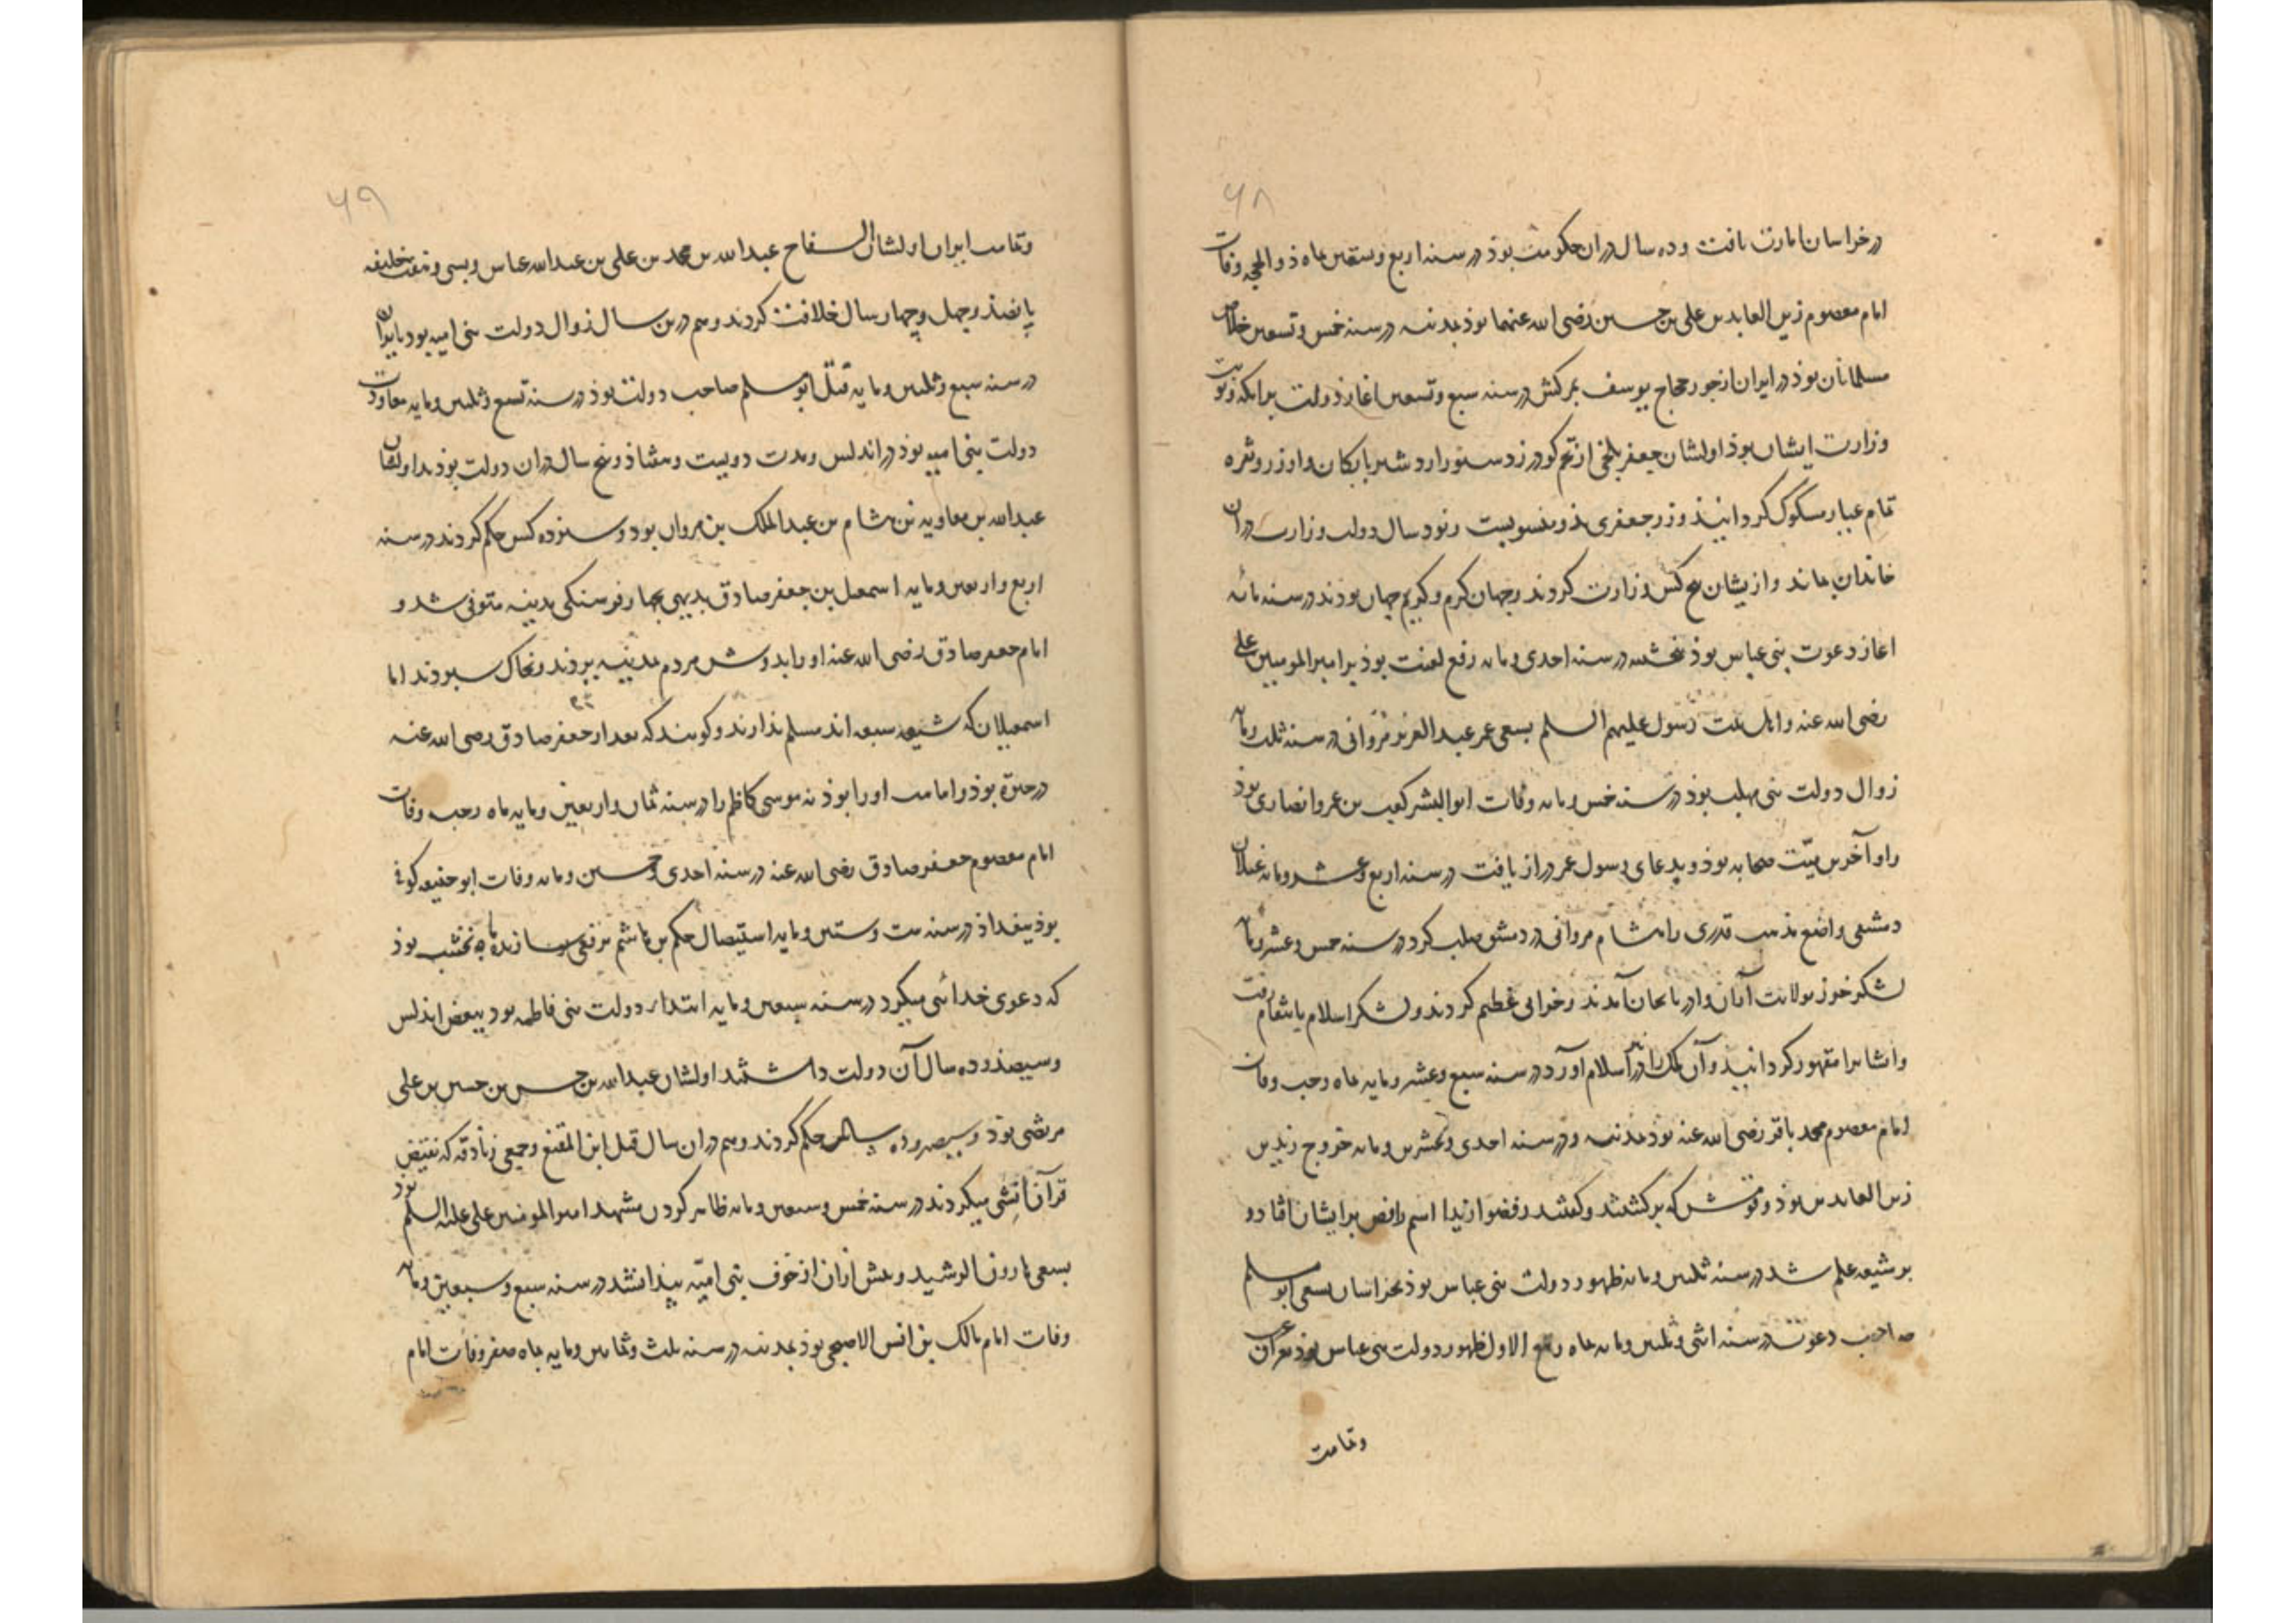 ۶۸
در خراسان امارت یافت و ده سال در ان حکومت بوذ در سنه اربع و تسعین ماه ذو الحجه وفات
امام معصوم زین العابدین علی بن حسین رضی الله عنهما بوذ بمدینه در سنه خمس و تسعین خلاص
مسلمانان بوذ در ایران از جور حجاج یوسف بمرکش در سنه سبع و تسعین اغاز دولت برامکه و نوبت
وزارت ایشان بوذ اولشان جعفر بلخی از تخم کودرز دستور اردشیر بابکان و او زر و نقره
تمام عیار مسکوک کردانیذ و زر جعفری بذو منسوبست و نود سال دولت وزارت در ان
خاندان بماند و ازیشان پنج کس وزارت کردند و جهان کرم و کریم جهان بودند در سنه مائه
اغاز دعوت بنی عباس بوذ در سنه احدی و مایه رفع لعنت بوذ بر امیر المومنین علی
رضی الله عنه و اهل بیت رسول علیهم السلم بسعی عمر عبد العزیز مروانی در سنه ثلث و مایه
زوال دولت بنی مهلب بوذ در سنه خمس و مایه وفات ابو البشر کعب بن عمرو انصاری بوذ
و او آخرین میّت صحابه بوذ و بدعای رسول عمر دراز یافت در سنه اربع و عشر و مایه غیلان
دمشقی واضع مذهب قدری را هشام مروانی در دمشق صلب کرد در سنه خمس و عشر و مایه
لشکر خزر بولایت اران و اذربایجان آمدند و خرابی عظیم کردند و لشکر اسلام بانتقام رفت
و ایشانرا مقهور کردانید و آن ملک را در اسلام آورد در سنه سبع و عشر و مایه ماه رجب وفات
امام معصوم محمد باقر رضی الله عنه بوذ بمدینه و در سنه احدی و عشرین و مایه خروج زید بن
زین العابدین بوذ و قومش که برکشتند و کفتند رفضوا زیدا اسم رافض بر ایشان افتاد و
بر شیعه علم شد در سنه ثلثین و مایه ظهور دولت بنی عباس بوذ بخراسان بسعی ابو مسلم
صاحب دعوت در سنه اثنی و ثلثین و مایه ماه ربیع الاول ظهور دولت بنی عباس بوذ بعراق
وتمامت
۶۹
وتمامت ایران اولشان السفاح عبد الله بن محمد بن علی بن عبد الله عباس و بسی و هفت خلیفه
پانصذ و چهل و چهار سال خلافت کردند و هم درین سال زوال دولت بنی امیه بود بایران
در سنه سبع و ثلثین و مایه قتل ابو مسلم صاحب دولت بوذ در سنه تسع و ثلثین و مایه معاودت
دولت بنی امیه بوذ در اندلس و مدت دویست و هشتاذ و پنج سال در ان دولت بوذند اولشان
عبد الله بن معاویه بن هشام بن عبد الملک بن مروان بود و سنزده کس حکم کردند در سنه
اربع و اربعین و مایه اسمعیل بن جعفر صادق بدیهی بچهار فرسنکی مدینه متوفی شد و
امام جعفر صادق رضی الله عنه او را بدوش مردم بمدینه بردند و بخاک سپردند اما
اسمعیلیان که شیعه سبعه اند مسلم ندارند و کویند که بعد از جعفر صادق رضی الله عنه
در حیوة بوذ و امامت او را بوذ نه موسی کاظم را در سنه ثمان و اربعین و مایه ماه رجب وفات
امام معصوم جعفر صادق رضی الله عنه در سنه احدی و خمسین و مایه وفات ابو حنیفه کوفی
بوذ ببغداذ در سنه ست و ستین و مایه استیصال حکم بن هاشم برقعی سازنده ماه نخشب بوذ
که دعوی خدائی میکرد در سنه سبعین و مایه ابتداء دولت بنی فاطمه بود ببعض اندلس
و سیصذ و ده سال آن دولت داشتند اولشان عبد الله بن حسن بن حسین بن علی
مرتضی بوذ و سیصد و ده سال حکم کردند و هم در ان سال قتل ابن المقنع و جمعی زنادقه که نقیض
قرآن انشی میکردند در سنه خمس و سبعین و مایه ظاهر کردن مشهد امیر المومنین علی علیه السلم بوذ
بسعی هارون الرشید و پیش ازان از خوف بنی امیّه پیدا نشد در سنه سبع و سبعین و مایه
وفات امام مالک بن انس الاصبحی بوذ بمدینه در سنه ثلث و ثمانین و مایه ماه صفر وفات امام